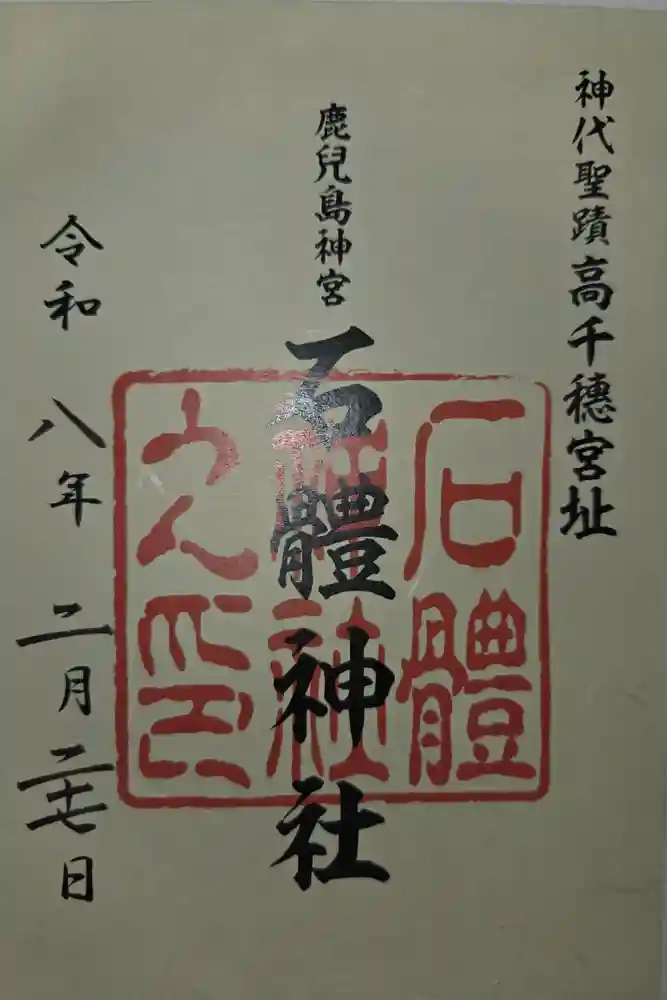 神代聖蹟高千穗宮址
鹿兒島神宮
石體神社
令和八年二月二十七日
石體
神社
之印